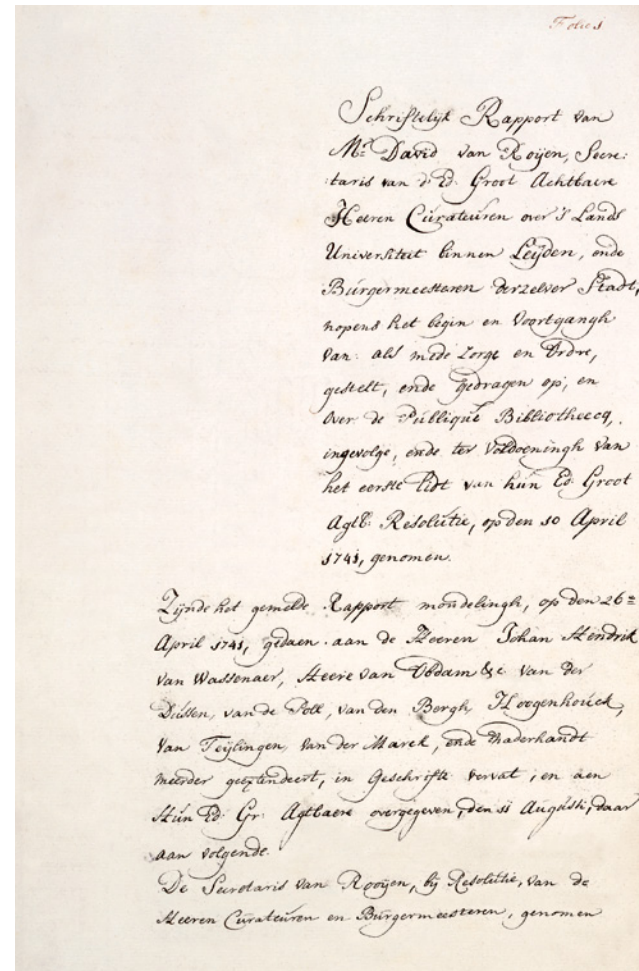 Folio 1
Schriftelijk Rapport van
Mr. David van Roijen, Secre:
:taris van d'Ed: Groot Achtbaere
Heeren Curateuren over 's Lands
Universiteit binnen Leijden, ende
Burgermeesteren derzelver Stadt,
nopens het begin en voortgangh
van: als mede zorge en ordre,
gestelt, ende gedragen op, en
over de Publique Bibliotheecq,
ingevolge, ende ter voldoeningh van
het eerste lidt van hun Ed: Groot
Agtb: Resolutie, op den 10 April
1741, genomen.
Zijnde het gemelde Rapport mondelingh, op den 26=
April 1741, gedaen aan de Heeren Johan Hendrik
van Wassenaer, Heere van Obdam &c van der
Dussen, van de Poll, van den Bergh, Hoogenhouck,
van Teijlingen, van der Marck, ende naderhandt
meerder geextendeert, in Geschrifte vervat, en aen
Hun Ed: Gr: Agtbaere overgegeven, den 11 Augusti, daar
aan volgende.
De Secretaris van Rooijen, bij Resolutie, van de
Heeren Curateuren en Burgermeesteren, genomen